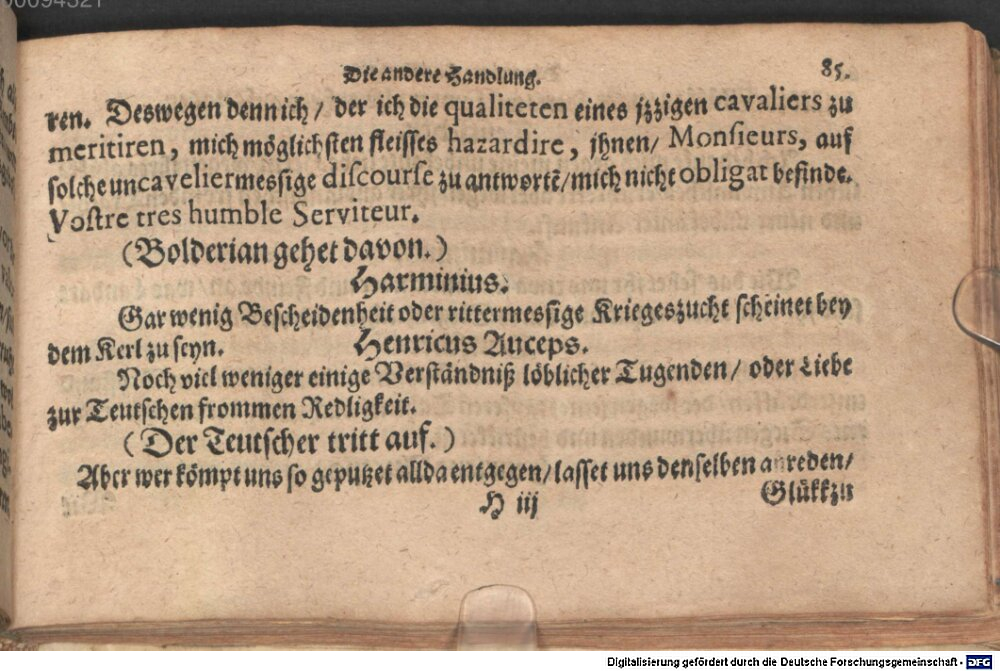 00094321
Die andere Handlung. 85.
ren. Deswegen denn ich / der ich die qualiteten eines jzzigen cavaliers zu
meritiren, mich möglichsten fleisses hazardire, jhnen / Monſieurs, auf
solche uncaveliermessige diſcourſe zu antwortẽ / mich nicht obligat befinde.
Voſtre tres humble Serviteur.
(Bolderian gehet davon.)
Harminius.
Gar wenig Bescheidenheit oder rittermessige Kriegeszucht scheinet bey
dem Kerl zu seyn. Henricus Auceps.
Noch viel weniger einige Verständniß löblicher Tugenden / oder Liebe
zur Teutschen frommen Redligkeit.
(Der Teutscher tritt auf.)
Aber wer kömpt uns so geputzet allda entgegen / lasset uns denselben anreden /
H iij Glükkzu
Digitalisierung gefördert durch die Deutsche Forschungsgemeinschaft - DFG